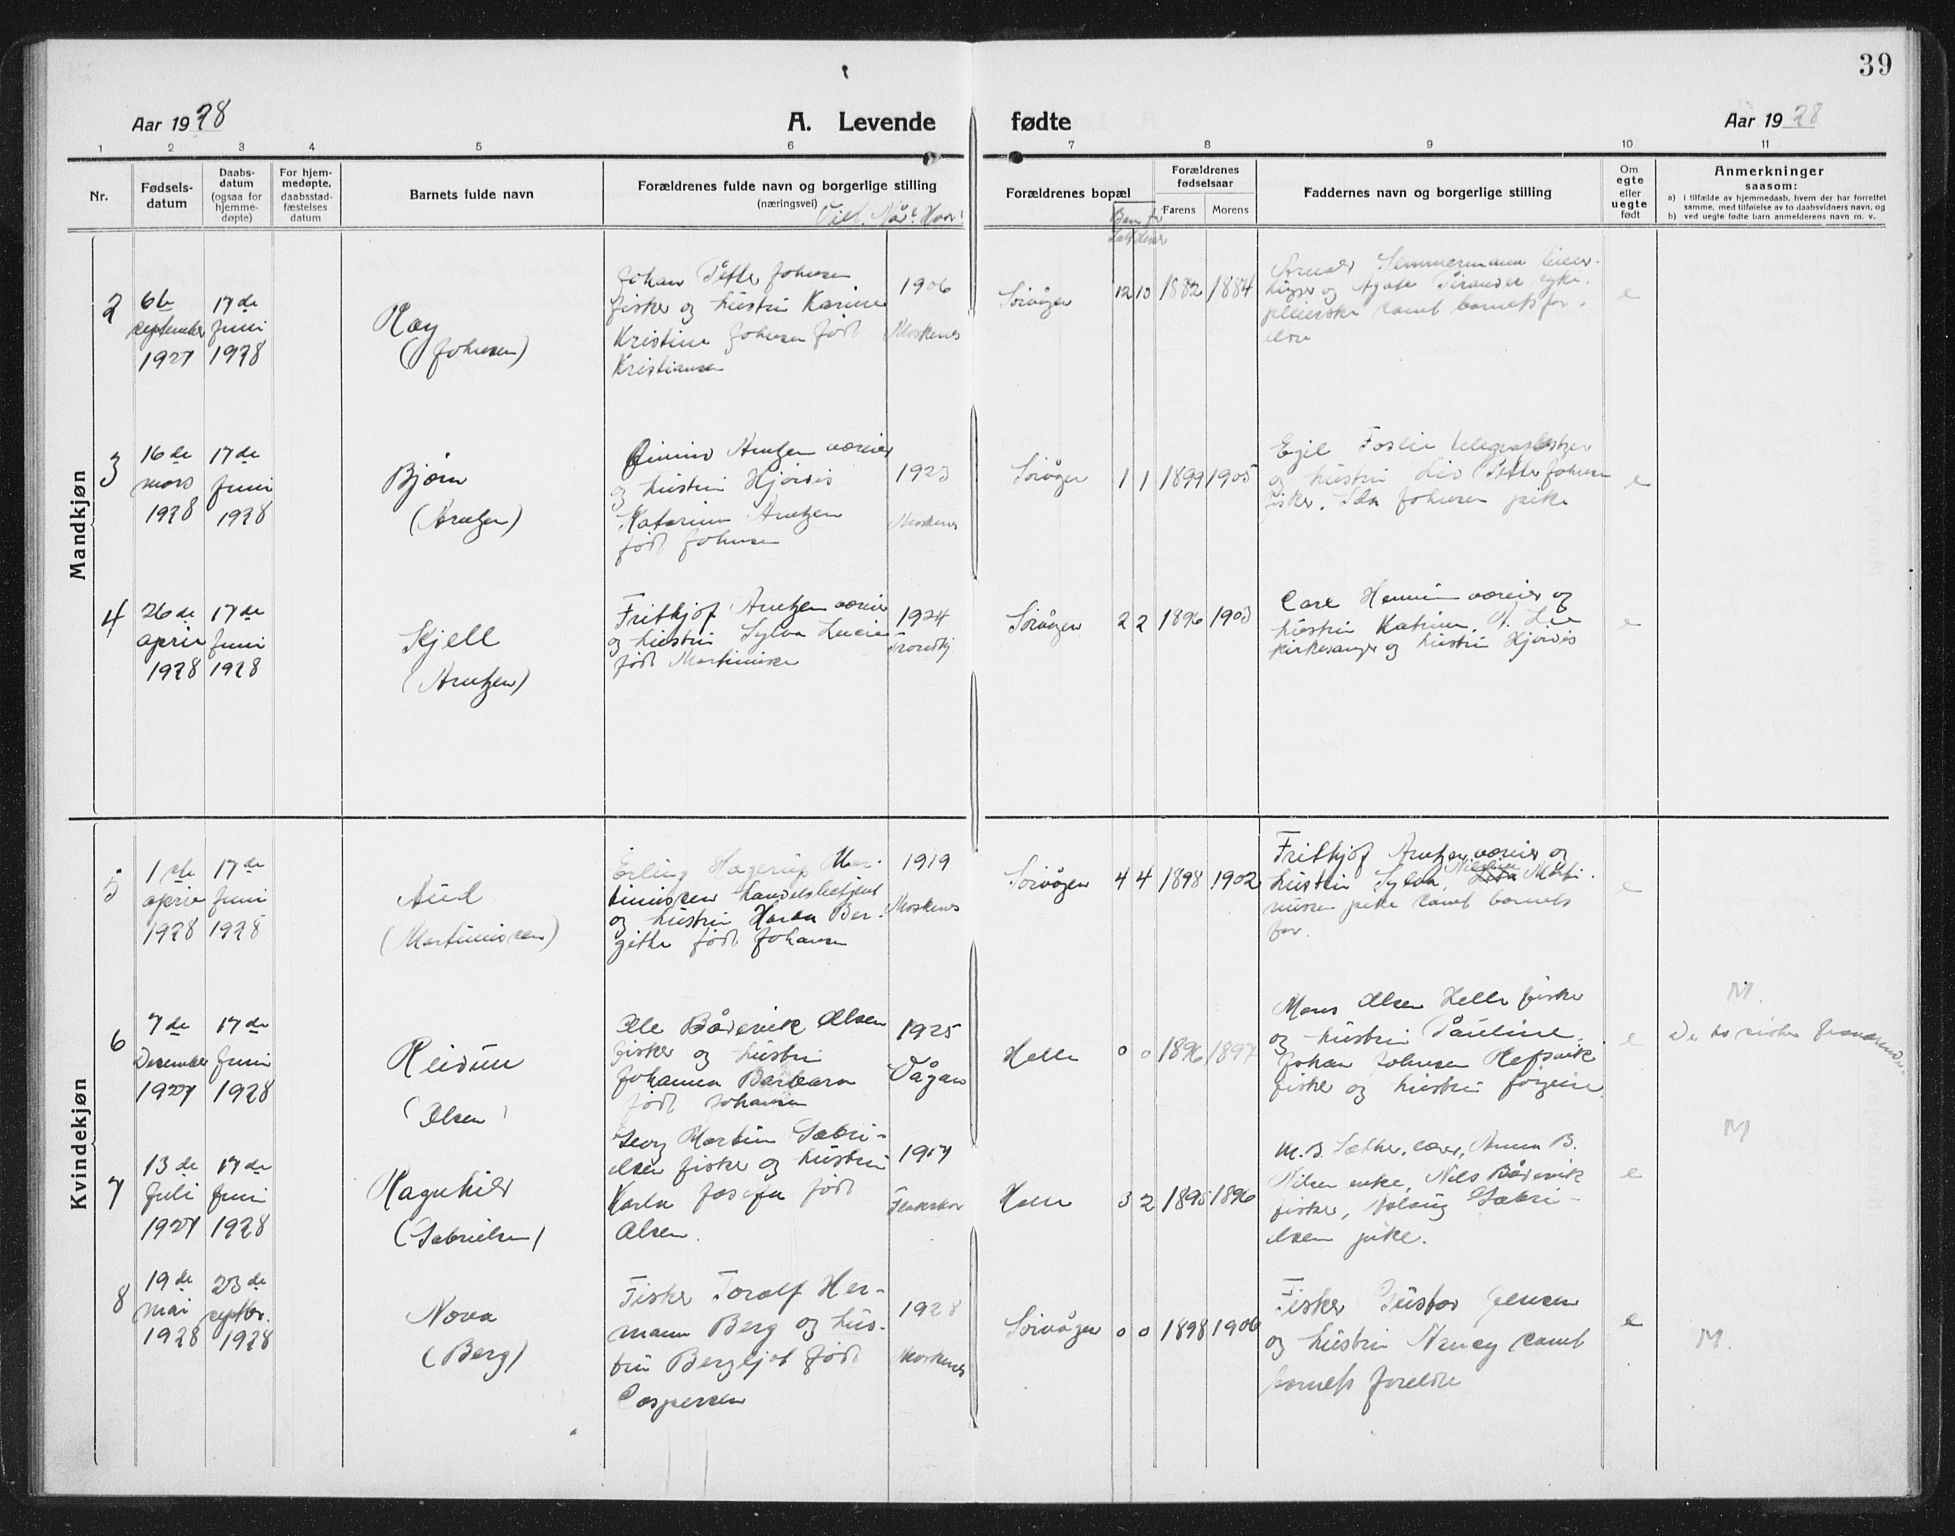 39
Aar 1928
A. Levende fødte
Aar 1928
1 2 3 4 5 6 7 8 9 10 11
Nr.
Fødsels-
datum
Daabs-
datum
(ogsaa for
hjemme-
døpte)
For hjem-
medøpte,
daabsstad-
fæstelses
datum
Barnets fulde navn
Forældrenes fulde navn og borgerlige stilling
(næringsvei)
Viet. Når? Hvor?
Forældrenes bopæl
Barn før
Forældrenes
fødselsaar
Farens Morens
Faddernes navn og borgerlige stilling
Om
egte
eller
uegte
født
Anmerkninger
saasom:
a) i tilfælde av hjemmedaab, hvem der har forrettet
samme, med tilføielse av to daabsvidners navn, og
b) ved uegte fødte barn anmelderens navn m. v.
Mandkjøn
2
6te
september
1927
17de
juni
1928
Roy
(Johnsen)
Johan Petter Johnsen
fisker og hustru Karine
Kristine Johnsen født
Kristiansen
1906
Moskenes
Sørvågen
12 10 1882 1884
samt barnets for-
eldre
e
3
16de
mars
1928
17de
juni
1928
Bjørn
(Arntzen)
Arntzen væreier
og hustru Hjørdis
Katarina Arntzen
født Johnsen
1923
Moskenes
Sørvågen
1 1 1899 1905
Egil Foslie telegrafbestyrer
og hustru Liv, Petter Johnsen
fisker, Johnsen pike
e
4
26de
april
1928
17de
juni
1928
Kjell
(Arntzen)
Frithjof Arntzen væreier
og hustru Sylva Lucie
født Martinussen
1924
Trondhj
Sørvågen
2 2 1896 1903
Carl væreier og
hustru Katrine,
kirkesanger og hustru Hjørdis
e
Kvindekjøn
5
1ste
april
1928
17de
juni
1928
Aud
(Martinussen)
Erling Hagerup Mar-
tinussen handelsbetjent
og hustru Ber-
githe født Johansen
1919
Moskenes
Sørvågen
4 4 1898 1902
Fritkjof Arntzen væreier og
hustru Sylva, Marti-
nussen pike samt barnets
far.
e
6
7de
Desember
1927
17de
juni
1928
Reidun
(Olsen)
Ole Bårdsvik Olsen
fisker og hustru
Johanna Barbara
født Johansen
1925
Vågan
Helle
0 0 1896 1897
Mons Olsen Helle fisker
og hustru Pauline,
Johan Johnsen Refsvik
fisker og hustru Jørgine.
e
M.
De to siste
7
13de
juli
1927
17de
juni
1928
Ragnhild
(Gabrielsen)
Georg Martin Gabri-
elsen fisker og hustru
Karla Josefa født
Olsen.
1917
Flakstad
Helle
3 2 1895 1896
M. B. Sæther, lærer, Anna B.
Nilsen enke, Nils Bårdsvik
fisker, Aslaug Gabri-
elsen pike.
e
M
8
19de
mai
1928
23de
septbr.
1928
Nora
(Berg)
Fisker Toralf Her-
mann Berg og hus-
tru Bergljot født
Caspersen
1928
Moskenes
Sørvågen
0 0 1898 1906
Fisker Gustav Jensen
og hustru Nancy samt
barnets foreldre
e
M.